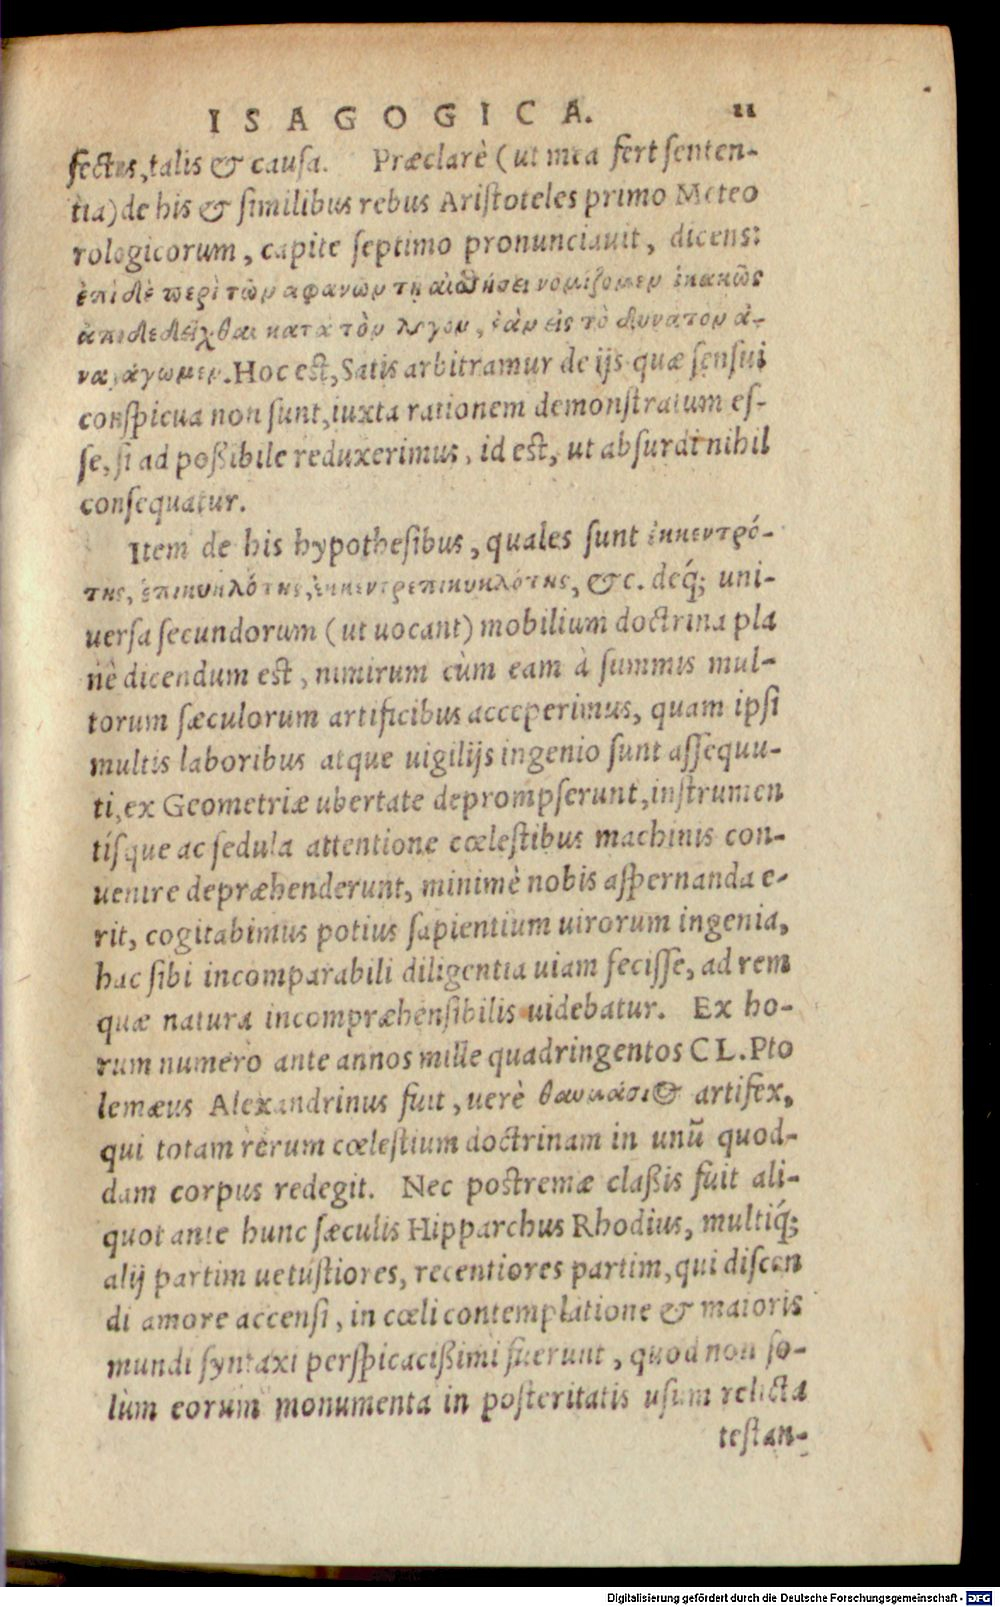 ISAGOGICA. 11
fectus, talis & causa. Præclarè (ut mea fert senten-
tia) de his & similibus rebus Aristoteles primo Meteo
rologicorum, capite septimo pronunciauit, dicens:
ἐπὶ δὲ περὶ τῶν αφανῶν τῇ αἰσθήσει νομίζομεν ἱκακῶς
ἀποδεδείχθαι κατα τὸν λόγον, ἐὰν εἰς τὸ δυνατον ἀ-
ναγάγωμεν. Hoc est, Satis arbitramur de ijs quæ sensui
conspicua non sunt, iuxta rationem demonstratum es-
se, si ad poßibile reduxerimus, id est, ut absurdi nihil
consequatur.
Item de his hypothesibus, quales sunt ἐκκεντρό-
της, ἐπικυκλότης, ἐκκεντρεπικυκλότης, &c. deq́; uni-
uersa secundorum (ut uocant) mobilium doctrina pla
nè dicendum est, nimirum cùm eam à summis mul-
torum sæculorum artificibus acceperimus, quam ipsi
multis laboribus atque uigilijs ingenio sunt assequu-
ti, ex Geometriæ ubertate deprompserunt, instrumen
tísque ac sedula attentione cœlestibus machinis con-
uenire depræhenderunt, minimè nobis aspernanda e-
rit, cogitabimus potius sapientium uirorum ingenia,
hac sibi incomparabili diligentia uiam fecisse, ad rem
quæ natura incompræhensibilis uidebatur. Ex ho-
rum numero ante annos mille quadringentos CL. Pto
lemæus Alexandrinus fuit, uerè θαυμάσιος artifex,
qui totam rerum cœlestium doctrinam in unū quod-
dam corpus redegit. Nec postremæ claßis fuit ali-
quot ante hunc sæculis Hipparchus Rhodius, multiq́;
alij partim uetustiores, recentiores partim, qui discen
di amore accensi, in cœli contemplatione & maioris
mundi syntaxi perspicacißimi fuerunt, quod non so-
lùm eorum monumenta in posteritatis usum relicta
testan-
Digitalisierung gefördert durch die Deutsche Forschungsgemeinschaft - DFG